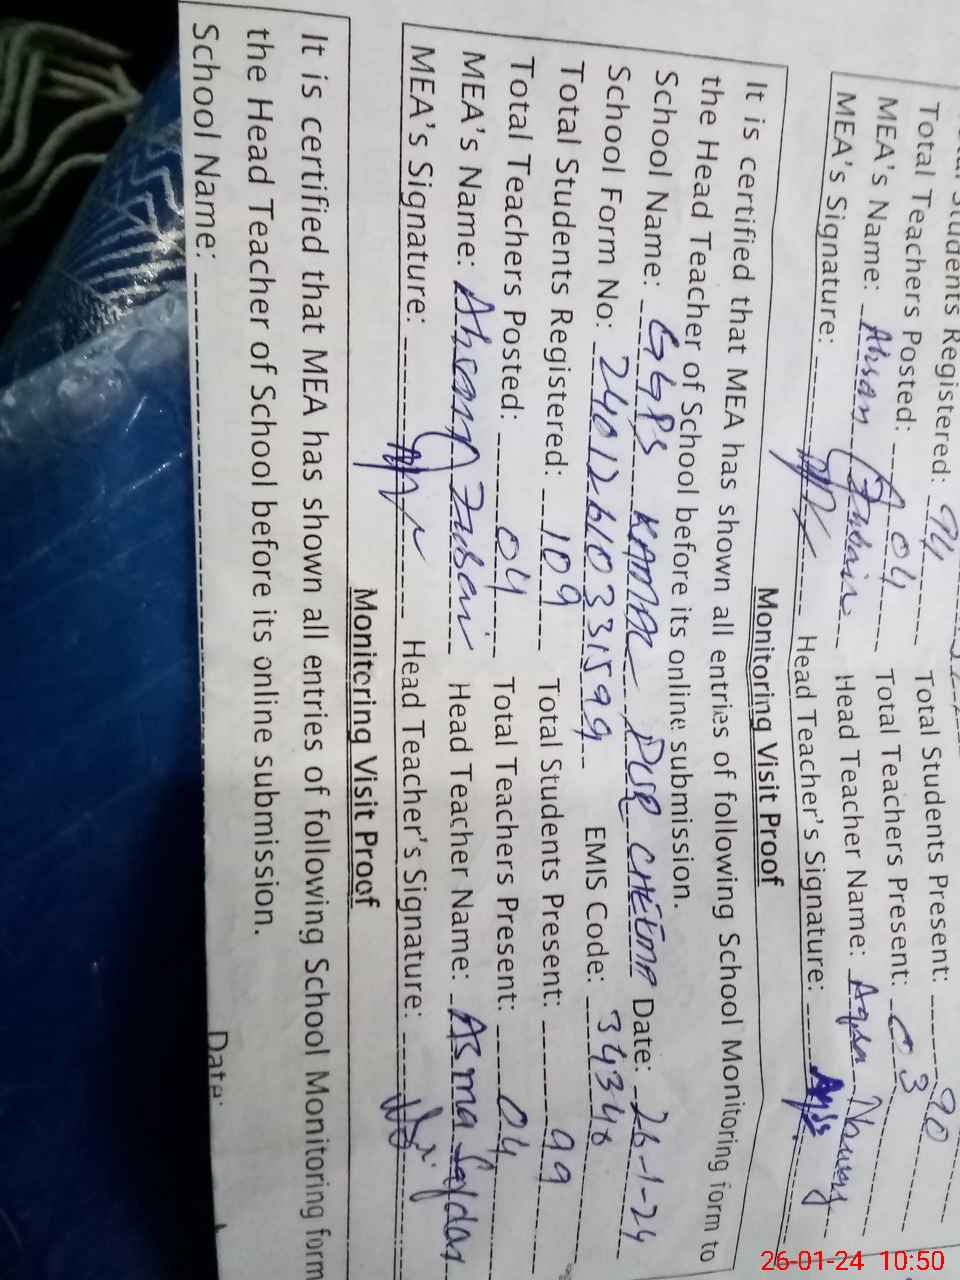 Students Registered: 94 Total Students Present: 90
Total Teachers Posted: 04 Total Teachers Present: 03
MEA's Name: Ahsan Head Teacher Name: Aqsa
MEA's Signature: Head Teacher's Signature: Aqsa
Monitoring Visit Proof
It is certified that MEA has shown all entries of following School Monitoring form to
the Head Teacher of School before its online submission.
School Name: GGPS PUR CHEEMA Date: 26-1-24
School Form No: 24012610331599 EMIS Code:
Total Students Registered: 109 Total Students Present: 99
Total Teachers Posted: 04 Total Teachers Present: 04
MEA's Name: Ahsan Head Teacher Name: Asma
MEA's Signature: Head Teacher's Signature:
Monitoring Visit Proof
It is certified that MEA has shown all entries of following School Monitoring form
the Head Teacher of School before its online submission.
School Name: Date:
26-01-24 10:50